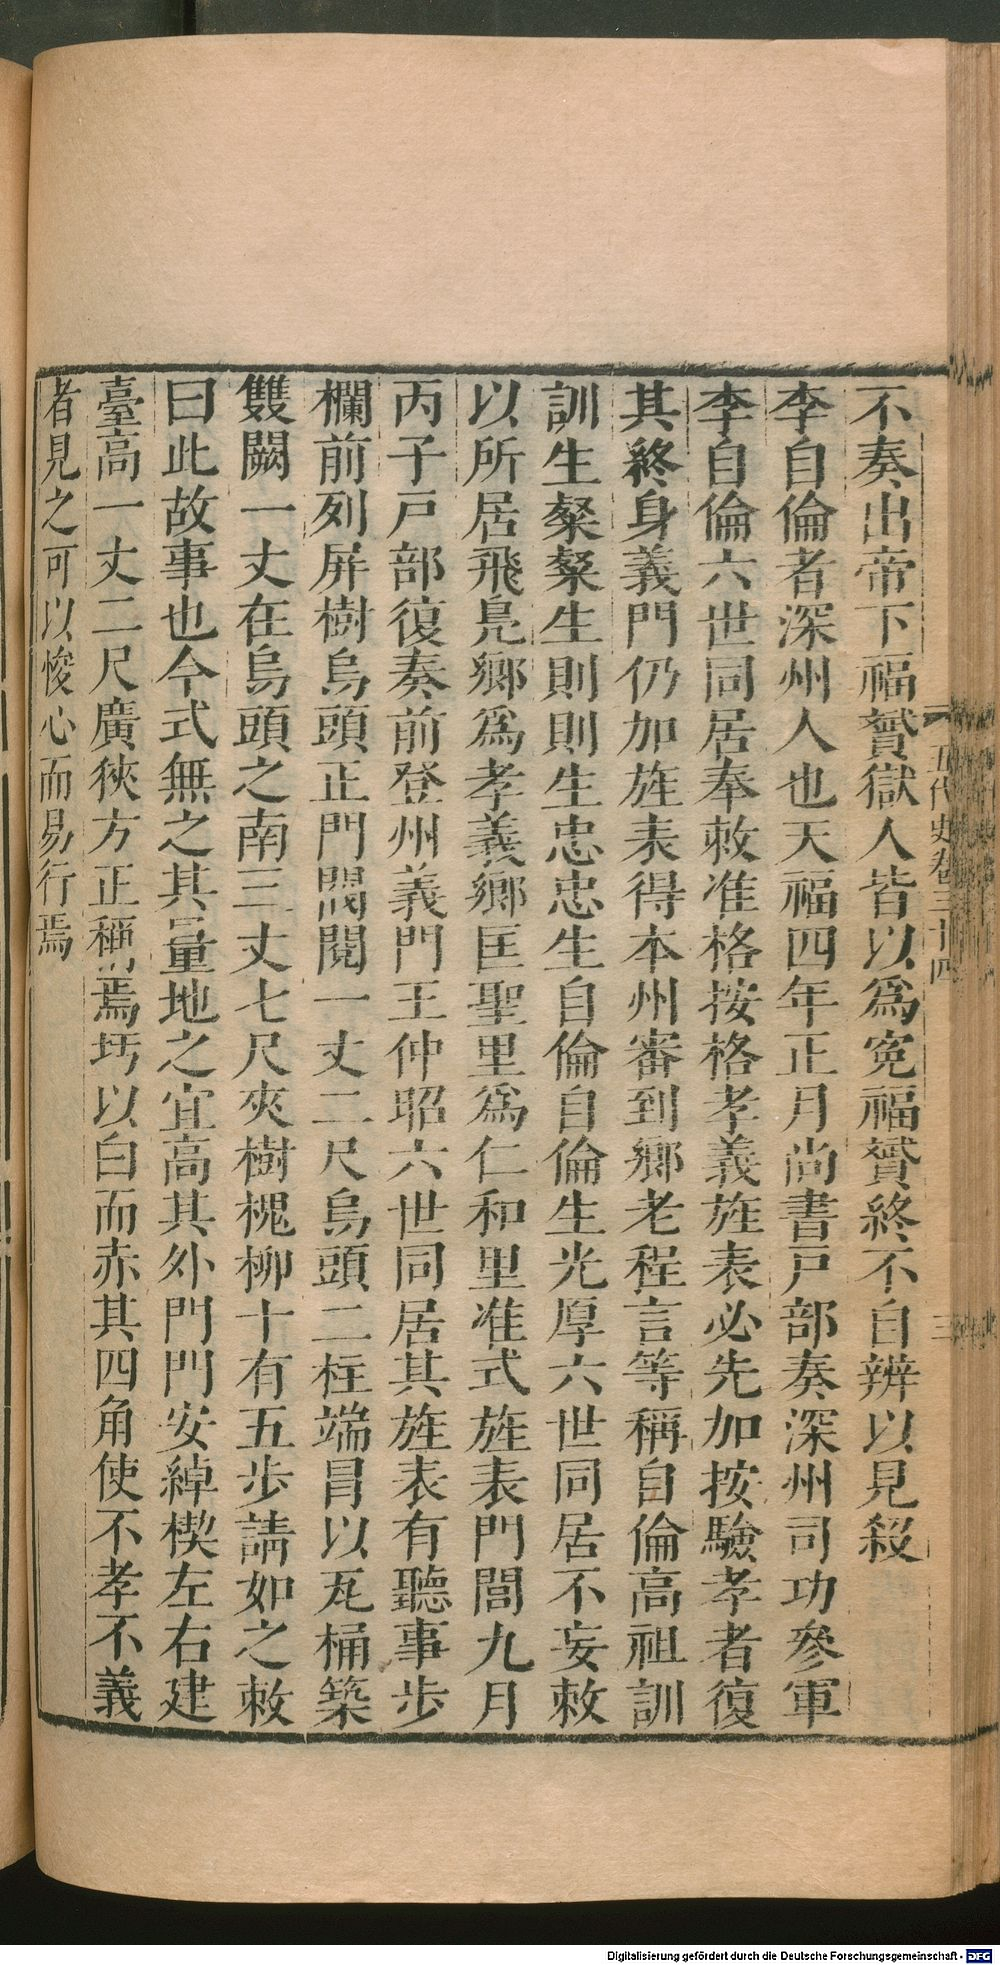 不奏出帝下福贇獄人皆以爲寃福贇終不自辨以見殺
李自倫者深州人也天福四年正月尚書戸部奏深州司功參軍
李自倫六世同居奉敕准格按格孝義旌表必先加按驗孝者復
其終身義門仍加旌表得本州審到鄉老程言等稱自倫高祖訓
訓生粲粲生則則生忠忠生自倫自倫生光厚六世同居不妄敕
以所居飛鳧鄉爲孝義鄉匡聖里爲仁和里准式旌表門閭九月
丙子戸部復奏前登州義門王仲昭六世同居其旌表有聽事步
欄前列屏樹烏頭正門閥閱一丈二尺烏頭二柱端冒以瓦桶築
雙闕一丈在烏頭之南三丈七尺夾樹槐柳十有五步請如之敕
曰此故事也今式無之其量地之宜高其外門門安綽楔左右建
臺高一丈二尺廣狹方正稱焉圬以白而赤其四角使不孝不義
者見之可以悛心而易行焉
五代史卷三十四
三
Digitalisierung gefördert durch die Deutsche Forschungsgemeinschaft - DFG